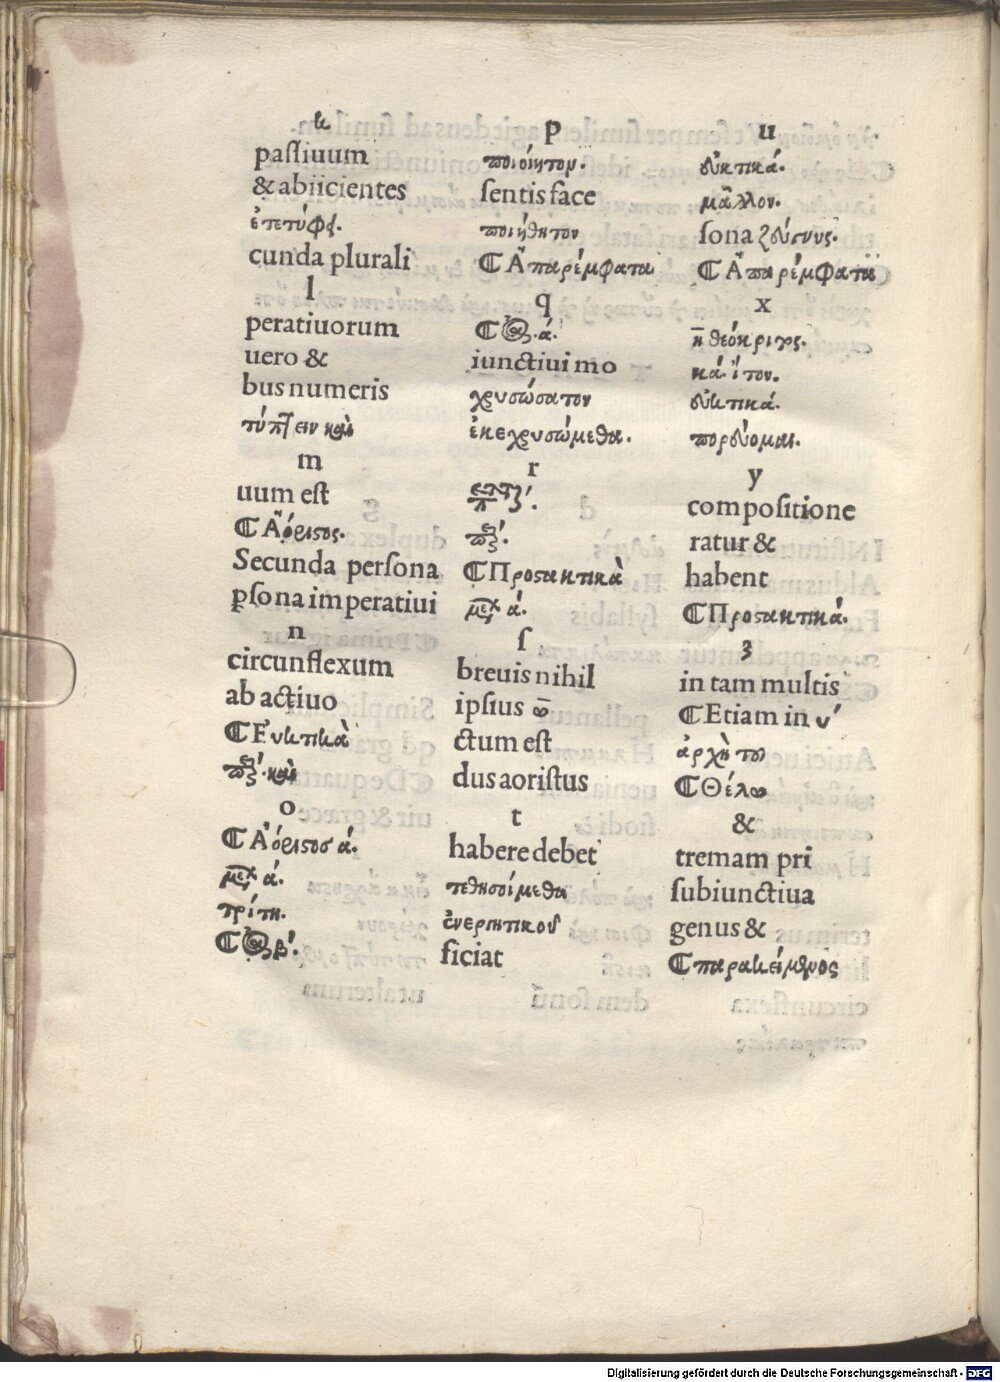 k
paſſiuum
& abiicientes
ἐτετύφς.
cunda plurali
l
peratiuorum
uero &
bus numeris
τύπτειν καὶ
m
uum eſt
⁋ Ἀόριστος.
Secunda perſona
ꝑſona imperatiui
n
circunflexum
ab actiuo
⁋ Εὐκτικὰ
καὶ
o
⁋ Ἀόριστοσ ά.
ά.
τρίτη.
⁋ β΄.
p
ποιοίητον.
ſentis face
ποιήθητον
⁋ Ἀπαρέμφατα
q
⁋ ά.
iunctiui mo
χρυσώσατον
ἐκεχρυσώμεθα.
r
⁋ Προστακτικὰ
ά.
ſ
breuis nihil
ipſius
ctum eſt
dus aoriſtus
t
habere debet
τεθησοίμεθα
ἐνεργητικοῦ
ficiat
u
εὐκτικά.
μᾶλλον.
ſona ζεύγνυς.
⁋ Ἀπαρέμφατα
x
ἢ θεόκριτος.
κά. ἴτον.
εὐκτικά.
πορεύομαι.
y
compoſitione
ratur &
habent
⁋ Προστακτικά.
z
in tam multis
⁋ Etiam in υ΄
ἀρχὴ του
⁋ Θέλω
&
tremam pri
ſubiunctiua
genus &
⁋ παρακείμενος
Digitalisierung gefördert durch die Deutsche Forschungsgemeinschaft - DFG